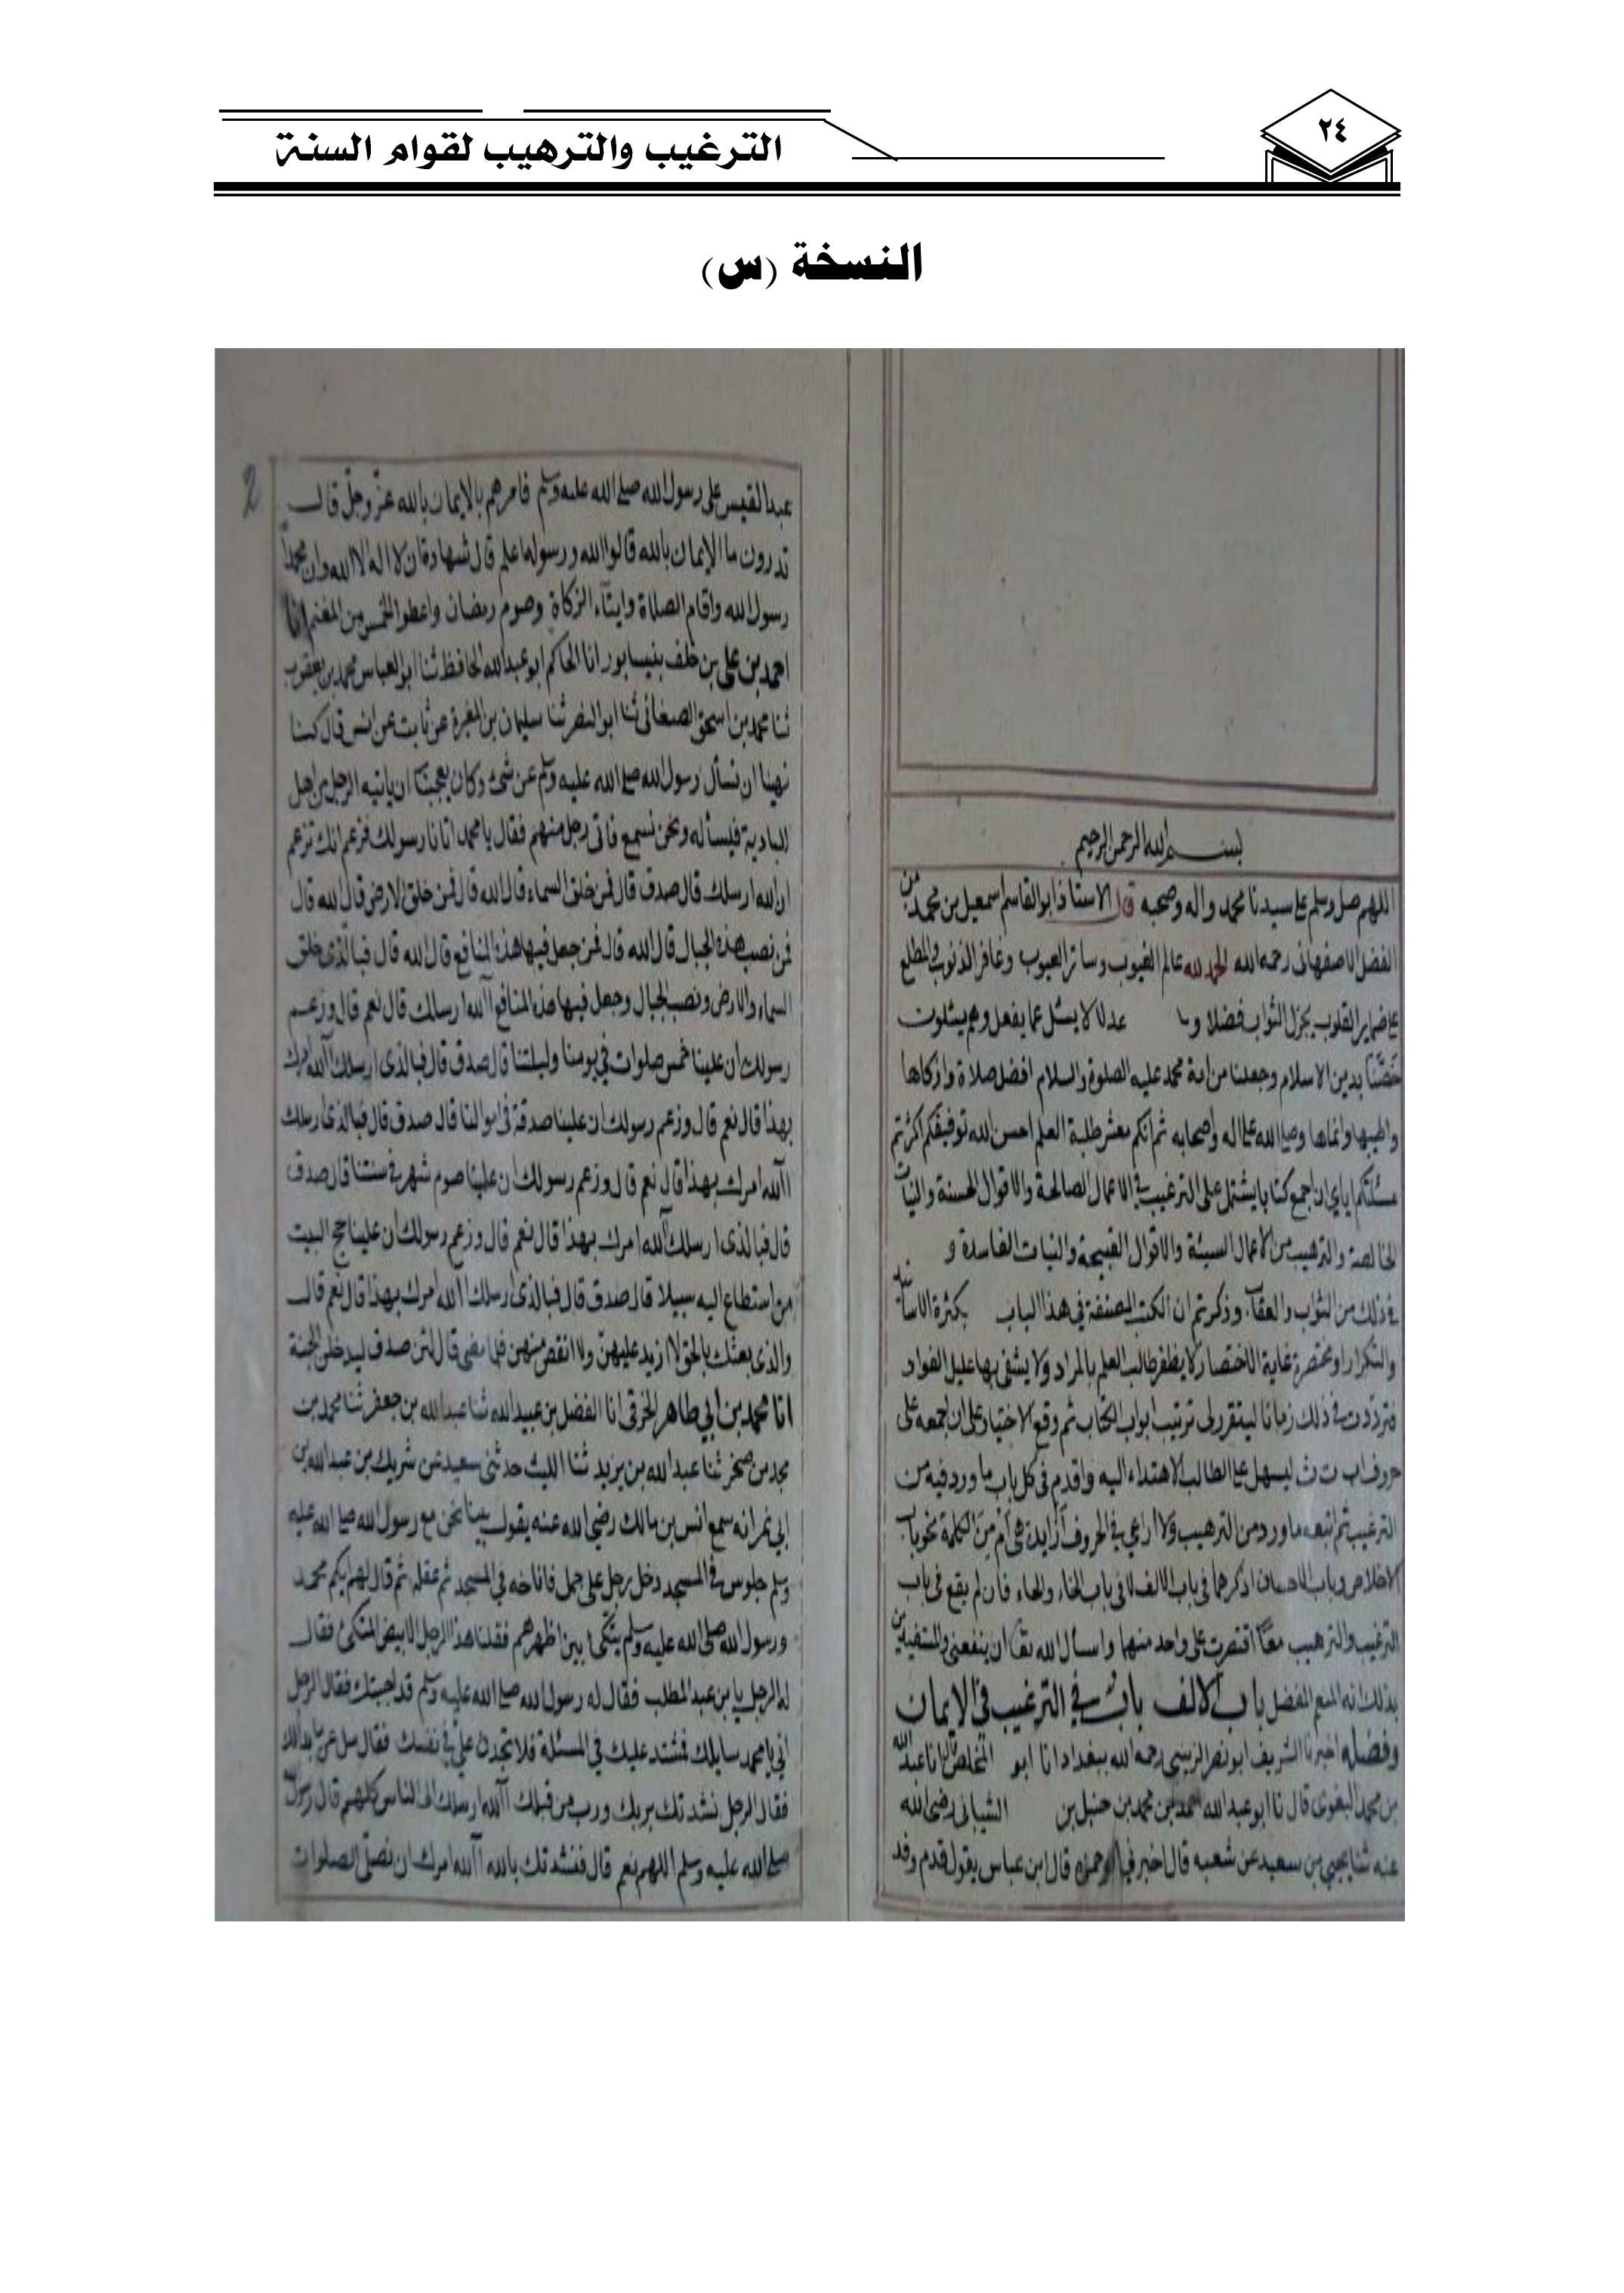 ٢٤
الترغيب والترهيب لقوام السنة
النسخة (س)
بسم الله الرحمن الرحيم
اللهم صل وسلم على سيدنا محمد واله وصحبه قال الاستاذ ابو القاسم اسمعيل بن محمد بن
الفضل الاصفهانى رحمه الله الحمد لله عالم الغيوب وساتر العيوب وغافر الذنوب والمطلع
على ضماير القلوب يجزل الثواب فضلا عدلا لا يسئل عما يفعل وهم يسئلون
خصّنا بدين الاسلام وجعلنا من امة محمد عليه الصلوة والسلام افضل صلاة وازكاها
واطيبها وانماها وصلى الله على اله وصحابه ثم انكم معشر طلبة العلم احسن الله توفيقكم اكثرتم
مسئلتكم اياى ان اجمع كتابا يشتمل على الترغيب في الاعمال الصالحة والاقوال الحسنة والنيات
الخالصة والترهيب من الاعمال السيئة والاقوال القبيحة والنيات الفاسدة و
في ذلك من الثواب والعقاب وذكرتم ان الكتب المصنفة في هذا الباب بكثرة الاسانيد
والتكرار او مختصرة غاية الاختصار لا يظفر طالب العلم بالمراد ولا يشفى بها غليل الفواد
فترددت في ذلك زمانا ليتقرر لى ترتيب ابواب الكتاب ثم وقع الاختيار على ان اجمعه على
حروف اب ت ث ليسهل على الطالب الاهتداء اليه واقدم فى كل باب ما ورد فيه من
الترغيب ثم اتبعه ما ورد من الترهيب ولا اراعي في الحروف ازايدة هى ام من الكلمة نحو باب
الاخلاص وباب الاحسان اذكرهما فى باب الالف لا فى باب الخاء والحاء فان لم يقع فى باب
الترغيب والترهيب معا اقتصرت على واحد منهما واسأل الله تعا ان ينفعنى والمستفيدين
بذلك انه المنعم المفضل باب الالف باب في الترغيب في الايمان
وفضله اخبرنا الشريف ابو نصر الزينبى رحمه الله ببغداد انا ابو المخلص انا عبد الله
بن محمد البغوى قال نا ابو عبد الله احمد بن محمد بن حنبل بن الشيبانى رضى الله
عنه ثنا يحيى بن سعيد عن شعبه قال اخبرنى ابو حمزه قال ابن عباس يقول قدم وفد
عبد القيس على رسول الله صلى الله عليه وسلم فامرهم بالايمان بالله عز وجل قال
تدرون ما الايمان بالله قالوا الله ورسوله اعلم قال شهادة ان لا اله الا الله وان محمدا
رسول الله واقام الصلاة وايتاء الزكاة وصوم رمضان واعطوا الخمس من المغنم انا
احمد بن على بن خلف بنيسابور انا الحاكم ابو عبد الله الحافظ ثنا ابو العباس محمد بن يعقوب
ثنا محمد بن اسحق الصغانى ثنا ابو النضر ثنا سليمان بن المغيرة عن ثابت عن انس قال كنا
نهينا ان نسأل رسول الله صلى الله عليه وسلم عن شئ وكان يعجبنا ان ياتيه الرجل من اهل
البادية فيسأله ونحن نسمع فاتى رجل منهم فقال يا محمد اتانا رسولك فزعم انك تزعم
ان الله ارسلك قال صدق قال فمن خلق السماء قال الله قال فمن خلق الارض قال الله قال
فمن نصب هذه الجبال قال الله قال فمن جعل فيها هذه المنافع قال الله قال فبالذى خلق
السماء والارض ونصب الجبال وجعل فيها هذه المنافع آلله ارسلك قال نعم قال وزعم
رسولك ان علينا خمس صلوات في يومنا وليلتنا قال صدق قال فبالذى ارسلك آلله امرك
بهذا قال نعم قال وزعم رسولك ان علينا صدقة فى اموالنا قال صدق قال فبالذى ارسلك
آلله امرك بهذا قال نعم قال وزعم رسولك ان علينا صوم شهر في سنتنا قال صدق
قال فبالذى ارسلك آلله امرك بهذا قال نعم قال وزعم رسولك ان علينا حج البيت
من استطاع اليه سبيلا قال صدق قال فبالذى ارسلك آلله امرك بهذا قال نعم قال
والذى بعثك بالحق لا ازيد عليهن ولا انقص منهن فلما مضى قال لئن صدق ليدخلن الجنة
انا محمد بن ابي طاهر الخرقى انا الفضل بن عبيد الله ثنا عبد الله بن جعفر ثنا محمد بن
محمد بن صخر ثنا عبد الله بن يزيد ثنا الليث حدثنى سعيد عن شريك بن عبد الله بن
ابي نمر انه سمع انس بن مالك رضى الله عنه يقول بينا نحن مع رسول الله صلى الله عليه
وسلم جلوس في المسجد دخل رجل على جمل فاناخه في المسجد ثم عقله ثم قال لهم ايكم محمد
ورسول الله صلى الله عليه وسلم يتكئ بين اظهرهم فقلنا هذا الرجل الابيض المتكئ فقال
له الرجل يا بن عبد المطلب فقال له رسول الله صلى الله عليه وسلم قد اجبتك فقال الرجل
اني يا محمد سايلك فمشتد عليك في المسئلة فلا تجدن علي في نفسك فقال سل عن ما بدالك
فقال الرجل نشدتك بربك ورب من قبلك آلله ارسلك الى الناس كلهم قال رسول الله
صلى الله عليه وسلم اللهم نعم قال فنشدتك بالله آلله امرك ان نصلى الصلوات